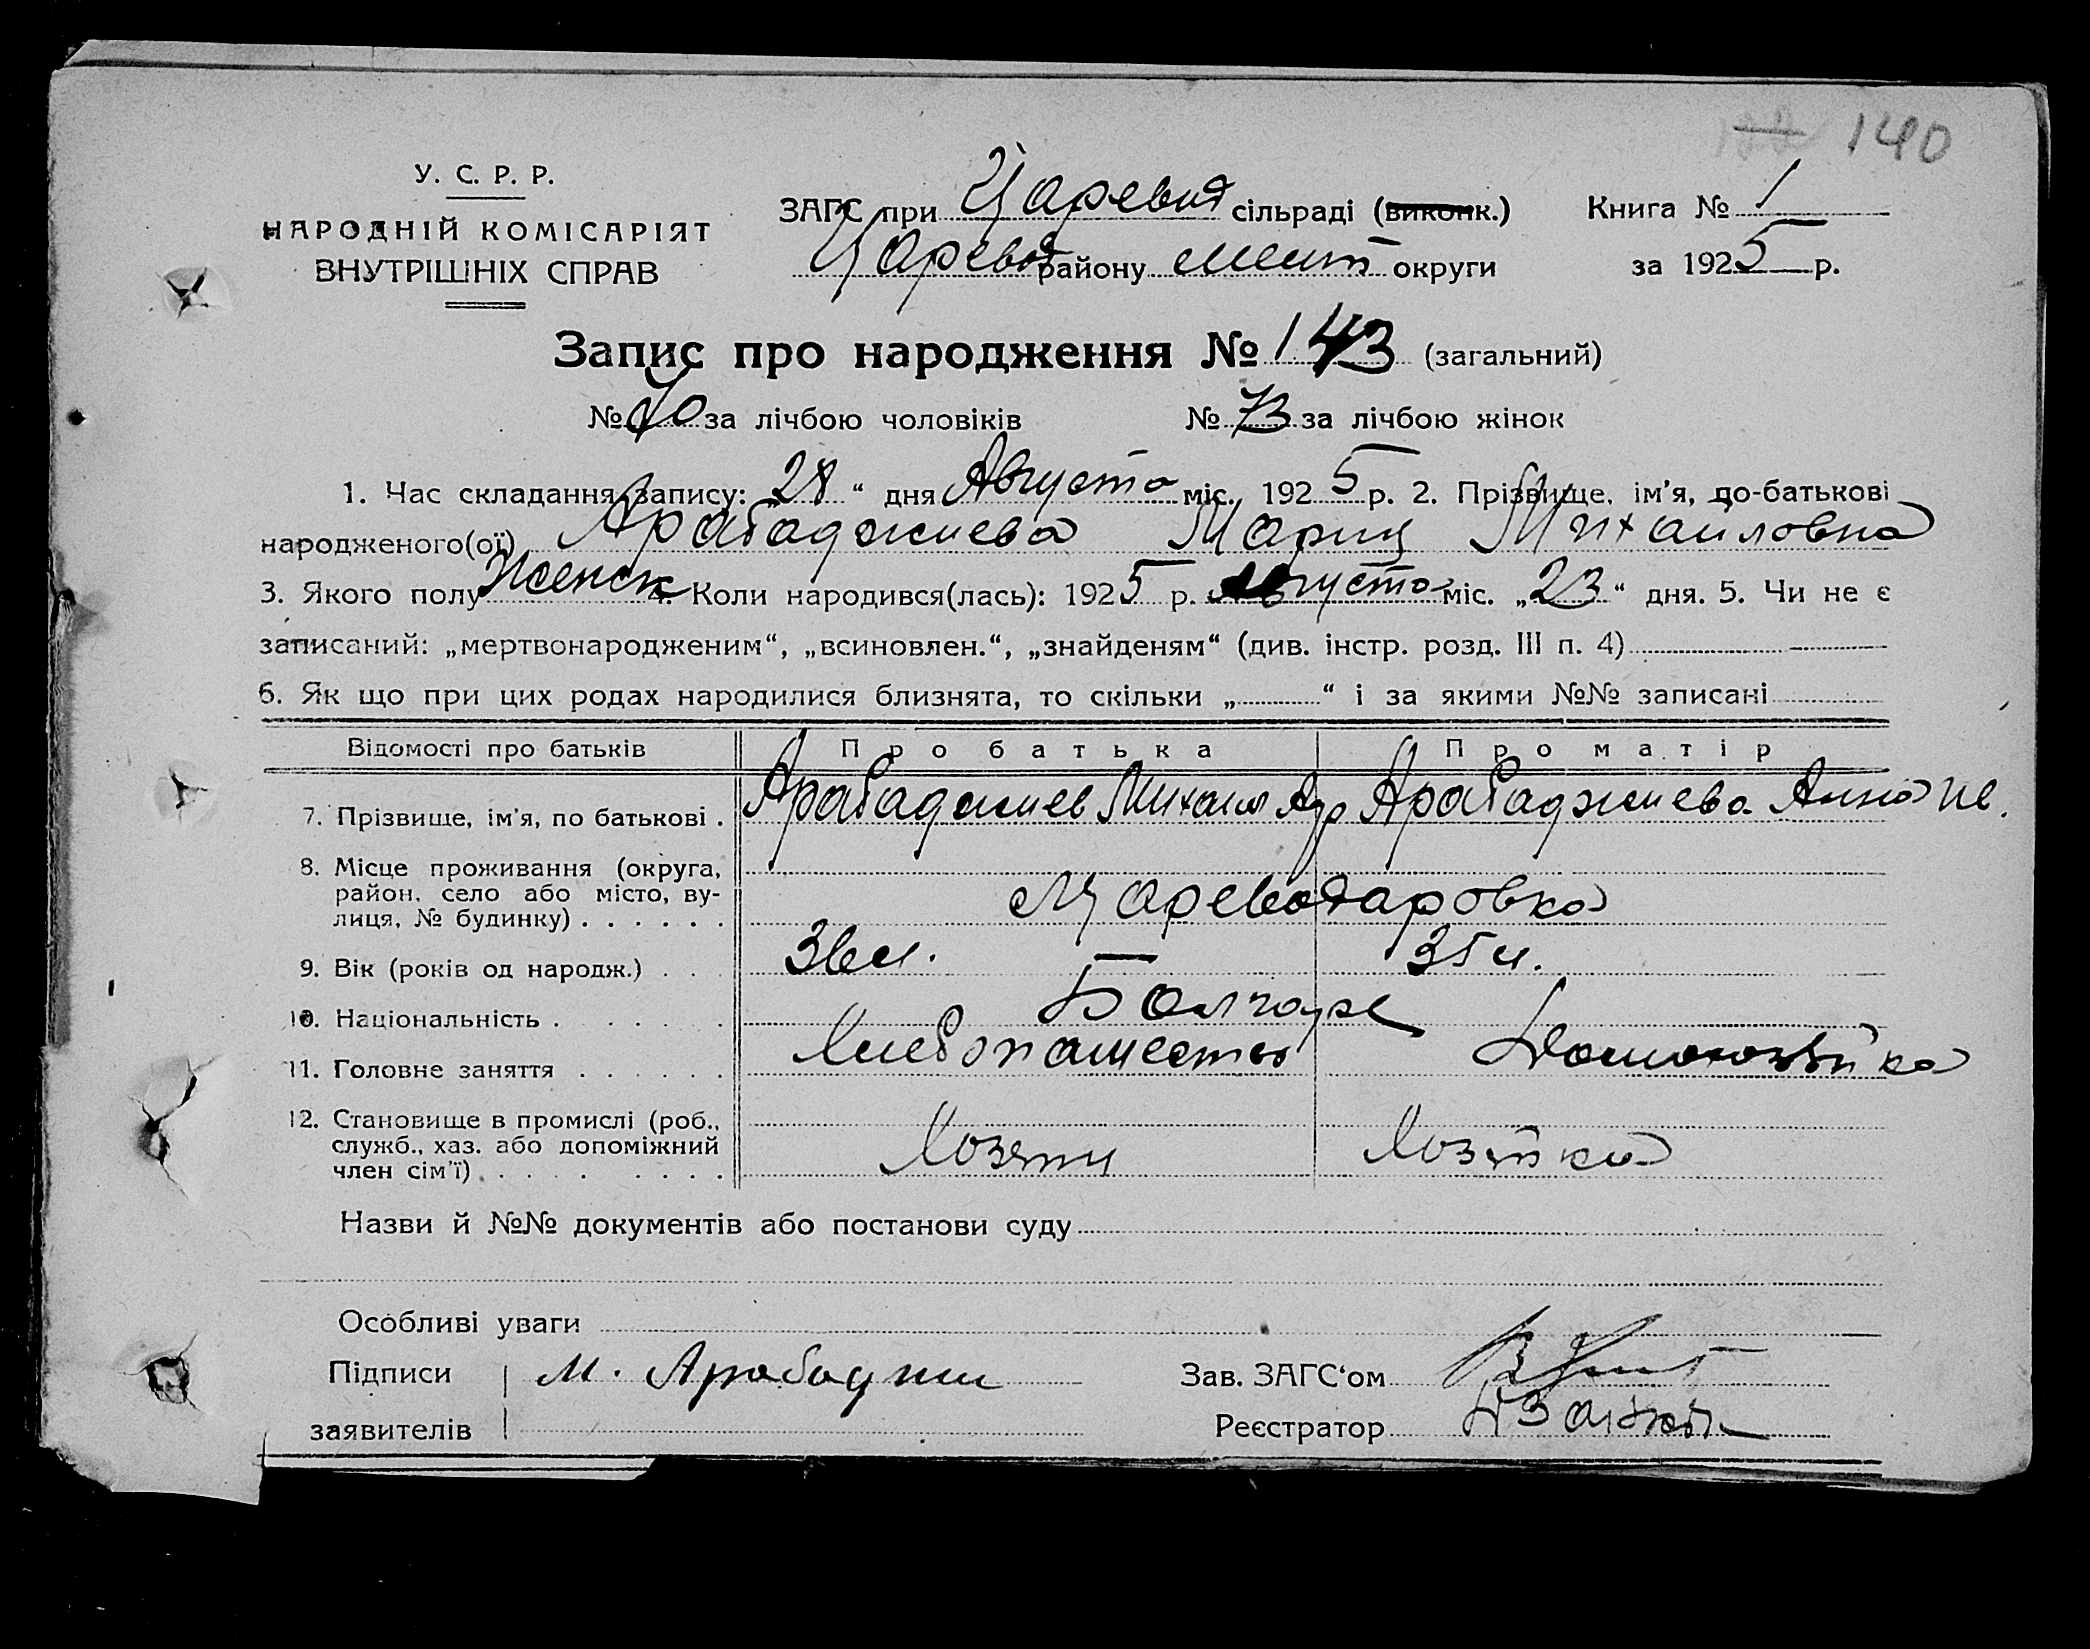 140
У. С. Р. Р.
НАРОДНІЙ КОМІСАРІЯТ
ВНУТРІШНІХ СПРАВ
ЗАГС при Царевод сільраді (виконк.)
Царевод району Мелит округи
Книга № 1
за 1925 р.
Запис про народження № 143 (загальний)
№ 70 за лічбою чоловіків № 73 за лічбою жінок
1. Час складання запису: „28“ дня Августа міс. 1925 р. 2. Прізвище, ім'я, по-батькові
народженого(ої) Арабаджиева Мария Михайловна
3. Якого полу Женск 4. Коли народився(лась): 1925 р. Августа міс. „23“ дня. 5. Чи не є
записаний: „мертвонародженим“, „всиновлен.“, „знайденям“ (див. інстр. розд. III п. 4)
6. Як що при цих родах народилися близнята, то скільки „ “ і за якими №№ записані
Відомості про батьків Про батька Про матір
7. Прізвище, ім'я, по батькові . Арабаджиев Михаил Арабаджиева Анна
8. Місце проживання (округа,
район, село або місто, ву-
лиця, № будинку) . . . . . . Цареводаровка
9. Вік (років од народж.) . . . 36 л. 35 л.
10. Національність . . . . . . Болгаре
11. Головне заняття . . . . . . Хлебопашество Домохозяйка
12. Становище в промислі (роб.,
служб., хаз. або допоміжний
член сім'ї) . . . . . . . . Хозяин Хозяйка
Назви й №№ документів або постанови суду
Особливі уваги
Підписи М. Арабаджи Зав. ЗАГС'ом
заявителів Реєстратор